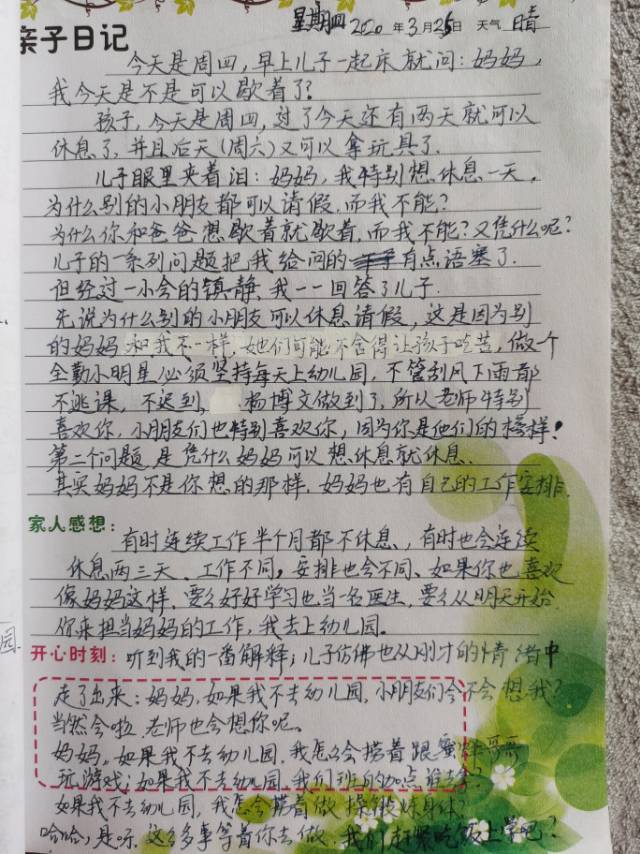 星期四 2020年3月25日 天气 晴
亲子日记
今天是周四，早上儿子一起床就问：妈妈，
我今天是不是可以歇着了？
孩子，今天是周四，过了今天还有两天就可以
休息了，并且后天（周六）又可以拿玩具了.
儿子眼里夹着泪：妈妈，我特别想休息一天，
为什么别的小朋友都可以请假，而我不能？
为什么你和爸爸想歇着就歇着，而我不能？又凭什么呢？
儿子的一系列问题把我给问的有点语塞了.
但经过一小会的镇静、我一一回答了儿子.
先说为什么别的小朋友可以休息请假，这是因为别
的妈妈和我不一样，她们可能不舍得让孩子吃苦，做个
全勤小明星必须坚持每天上幼儿园，不管刮风下雨都
不逃课，不迟到，杨博文做到了，所以老师特别
喜欢你，小朋友们也特别喜欢你，因为你是他们的榜样！
第二个问题，是凭什么妈妈可以想休息就休息.
其实妈妈不是你想的那样，妈妈也有自己的工作安排.
家人感想：
有时连续工作半个月都不休息、有时也会连续
休息两三天、工作不同，安排也会不同、如果你也喜欢
像妈妈这样，要么好好学习也当一名医生，要么从明天开始
你来担当妈妈的工作，我去上幼儿园。
开心时刻：听到我的一番解释；儿子仿佛也从刚才的情绪中
走了出来：妈妈，如果我不去幼儿园，小朋友们会不会想我？
当然会啦 老师也会想你呢。
妈妈。如果我不去幼儿园，我怎么会搂着跟蜜蜂哥哥
玩游戏；如果我不去幼儿园，我们班的加点谁去拿？
如果我不去幼儿园，我怎会搂着做操锻炼身体？
哈哈，是呀，这么多事等着你去做，我们赶紧吃饭上学吧？
园.